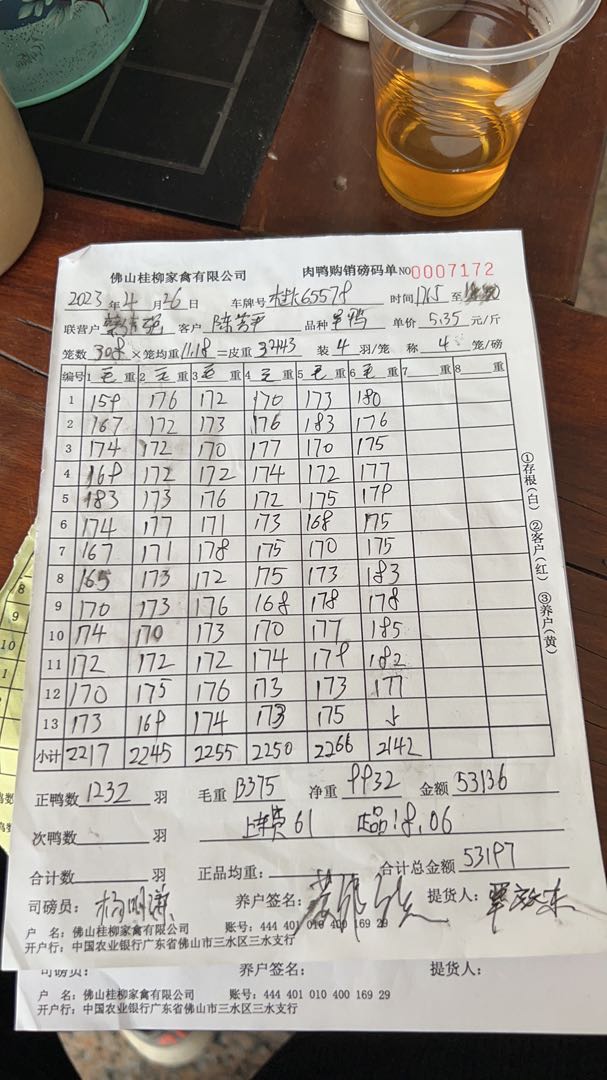 佛山桂柳家禽有限公司 肉鸭购销磅码单 NO 0007172
2023 年 4 月 26 日 车牌号 时间 至
联营户 客户 品种 单价 5.35 元/斤
笼数 308 × 笼均重 11.18 = 皮重 3443 装 4 羽/笼 称 4 笼/磅
编号 1 毛 重 2 毛 重 3 毛 重 4 毛 重 5 毛 重 6 毛 重 7 重 8 重
1 159 176 172 170 173 180
2 167 172 173 176 183 176
3 174 172 170 177 170 175
4 169 172 172 174 172 177
5 183 173 176 172 175 179
6 174 177 171 173 168 175
7 167 171 178 175 170 175
8 165 173 172 175 173 183
9 170 173 176 168 178 178
10 174 170 173 170 177 185
11 172 172 172 174 179 182
12 170 175 176 173 173 177
13 173 169 174 173 175
小计 2217 2245 2255 2250 2266 2142
正鸭数 1232 羽 毛重 13375 净重 9932 金额 53136
次鸭数 羽 61 正品 8.06
合计数 羽 正品均重: 合计总金额 53197
司磅员: 杨明谦 养户签名: 提货人:
户 名: 佛山桂柳家禽有限公司 账号: 444 401 010 400 169 29
开户行: 中国农业银行广东省佛山市三水区三水支行
①存根(白) ②客户(红) ③养户(黄)
司磅员: 养户签名: 提货人:
户 名: 佛山桂柳家禽有限公司 账号: 444 401 010 400 169 29
开户行: 中国农业银行广东省佛山市三水区三水支行